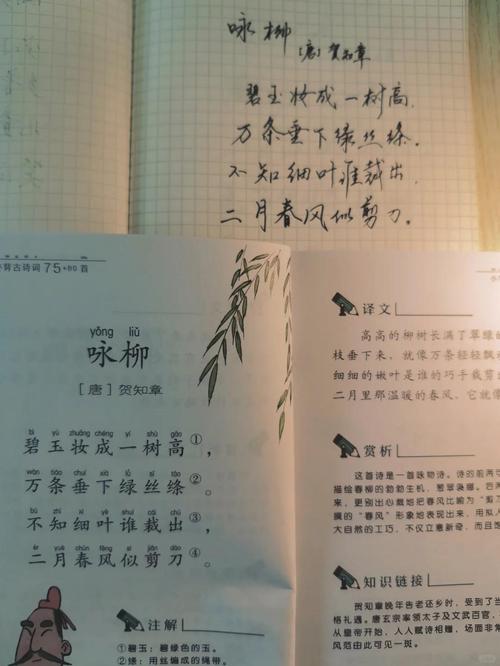 咏柳
[唐] 贺知章
碧玉妆成一树高
万条垂下绿丝绦.
不知细叶谁裁出.
二月春风似剪刀.
背古诗词 75+80 首
yǒng liǔ
咏柳
[唐] 贺知章
bì yù zhuāng chéng yí shù gāo
碧玉妆成一树高①,
wàn tiáo chuí xià lǜ sī tāo
万条垂下绿丝绦②。
bù zhī xì yè shuí cái chū
不知细叶谁裁出③,
èr yuè chūn fēng sì jiǎn dāo
二月春风似剪刀④。
注解
①碧玉:碧绿色的玉。
②绦:用丝编成的绳带。
译文
高高的柳树长满了翠绿的
枝垂下来,就像万条轻轻飘
细细的嫩叶是谁的巧手裁剪
二月里那温暖的春风,它就像
赏析
这首诗是一首咏物诗。诗的前两
描绘春柳的勃勃生机,葱翠袅娜。后两
来,更别出心裁地把春风比喻为“剪
摸的“春风”形象地表现出来,用拟人
大自然的工巧,不仅立意新奇,而且饱
知识链接
贺知章晚年告老还乡时,受到了
格礼遇。唐玄宗率领太子及文武百官,
从皇帝开始,人人赋诗相赠,场面非常
风范由此可见一斑。